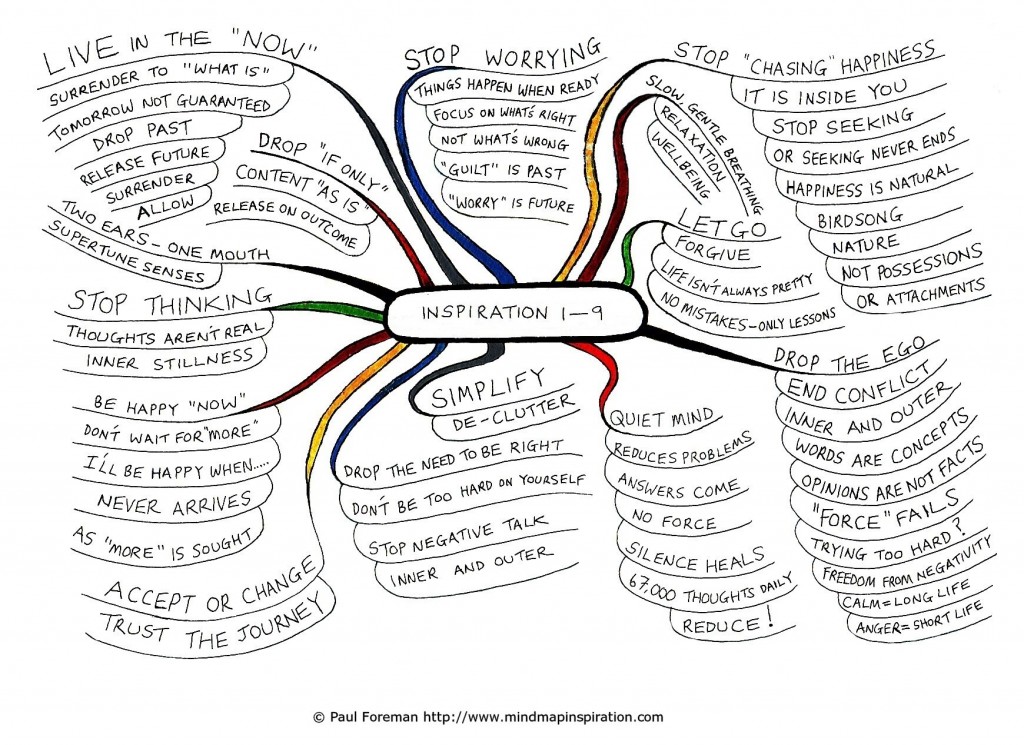 LIVE IN THE "NOW"
SURRENDER TO "WHAT IS"
TOMORROW NOT GUARANTEED
DROP PAST
RELEASE FUTURE
SURRENDER
ALLOW
DROP "IF ONLY"
CONTENT "AS IS"
RELEASE ON OUTCOME
TWO EARS - ONE MOUTH
SUPERTUNE SENSES
STOP THINKING
THOUGHTS AREN'T REAL
INNER STILLNESS
BE HAPPY "NOW"
DON'T WAIT FOR "MORE"
I'LL BE HAPPY WHEN.....
NEVER ARRIVES
AS "MORE" IS SOUGHT
ACCEPT OR CHANGE
TRUST THE JOURNEY
STOP WORRYING
THINGS HAPPEN WHEN READY
FOCUS ON WHAT'S RIGHT
NOT WHAT'S WRONG
"GUILT" IS PAST
"WORRY" IS FUTURE
INSPIRATION 1-9
SIMPLIFY
DE-CLUTTER
DROP THE NEED TO BE RIGHT
DON'T BE TOO HARD ON YOURSELF
STOP NEGATIVE TALK
INNER AND OUTER
STOP "CHASING" HAPPINESS
IT IS INSIDE YOU
STOP SEEKING
OR SEEKING NEVER ENDS
HAPPINESS IS NATURAL
BIRDSONG
NATURE
NOT POSSESSIONS
OR ATTACHMENTS
SLOW, GENTLE BREATHING
RELAXATION
WELLBEING
LET GO
FORGIVE
LIFE ISN'T ALWAYS PRETTY
NO MISTAKES - ONLY LESSONS
DROP THE EGO
END CONFLICT
INNER AND OUTER
WORDS ARE CONCEPTS
OPINIONS ARE NOT FACTS
"FORCE" FAILS
TRYING TOO HARD?
FREEDOM FROM NEGATIVITY
CALM = LONG LIFE
ANGER = SHORT LIFE
QUIET MIND
REDUCES PROBLEMS
ANSWERS COME
NO FORCE
SILENCE HEALS
67,000 THOUGHTS DAILY
REDUCE!
© Paul Foreman http://www.mindmapinspiration.com